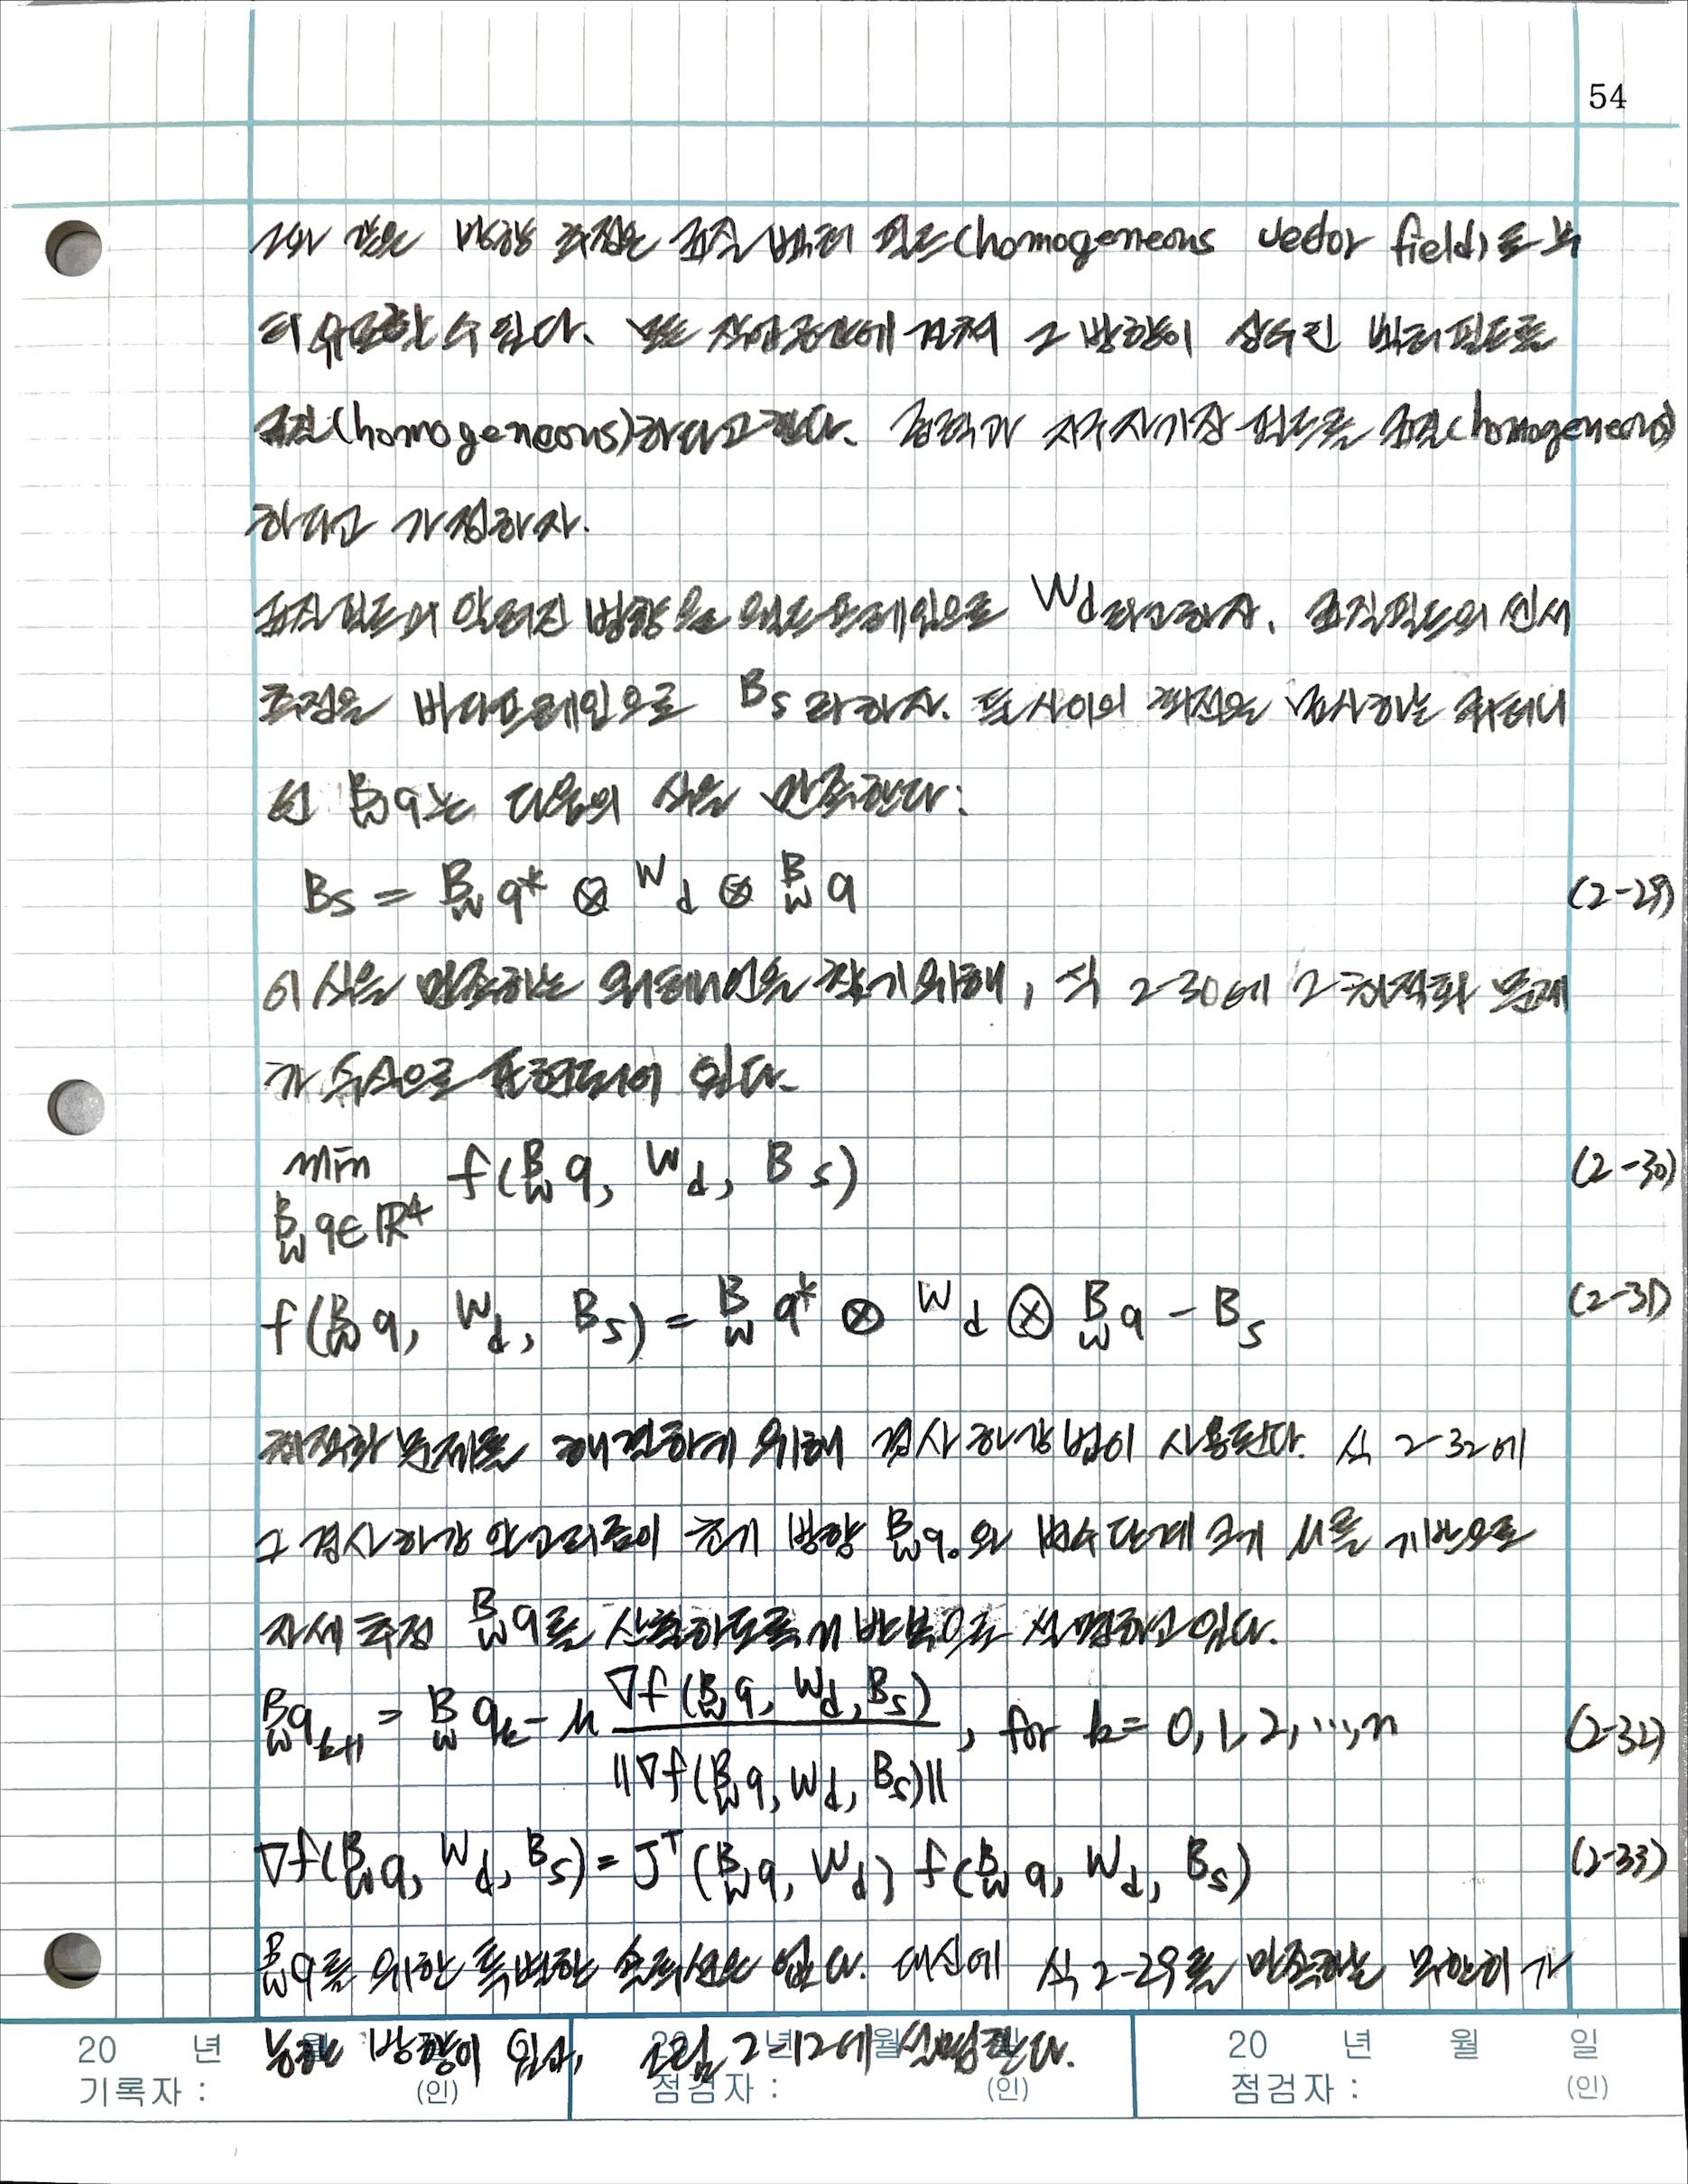 54
그와 같은 방향 측정은 균질 벡터 필드(homogeneous vector field)로부
터 유도할 수 있다. 모든 작업공간에 걸쳐 그 방향이 상수인 벡터필드를
균질(homogeneous)하다고 한다. 중력과 지구자기장 필드를 균질(homogeneous)
하다고 가정하자.
균질필드의 알려진 방향을 월드프레임으로 Wd라고하자. 균질필드의 센서
측정을 바디프레임으로 Bs라하자. 둘 사이의 회전을 묘사하는 쿼터니
언 B W q는 다음의 식을 만족한다:
Bs = B W q* ⊗ W d ⊗ B W q (2-29)
이 식을 만족하는 쿼터니언을 찾기위해, 식 2-30에 그 최적화 문제
가 수식으로 표현되어 있다.
min f(B W q, W d, B s) (2-30)
B W q∈ℝ⁴
f(B W q, W d, B s) = B W q* ⊗ W d ⊗ B W q - B s (2-31)
최적화 문제를 해결하기 위해 경사하강법이 사용된다. 식 2-32에
그 경사하강 알고리즘이 초기 방향 B W q₀와 변수단계 크기 μ를 기반으로
자세 추정 B W q를 산출하도록 n 반복으로 설명하고 있다.
B W q k+1 = B W q k - μ ∇f(B W q, W d, B s) / ||∇f(B W q, W d, B s)||, for k = 0, 1, 2, ..., n (2-32)
∇f(B W q, W d, B s) = Jᵀ(B W q, W d) f(B W q, W d, B s) (2-33)
B W q를 위한 특별한 솔루션은 없다. 대신에 식 2-29를 만족하는 무한의 가
능한 방향이 있고, 그림 2-12에 설명한다.
20 년 월 일 20 년 월 일 20 년 월 일
기록자 : (인) 점검자 : (인) 점검자 : (인)